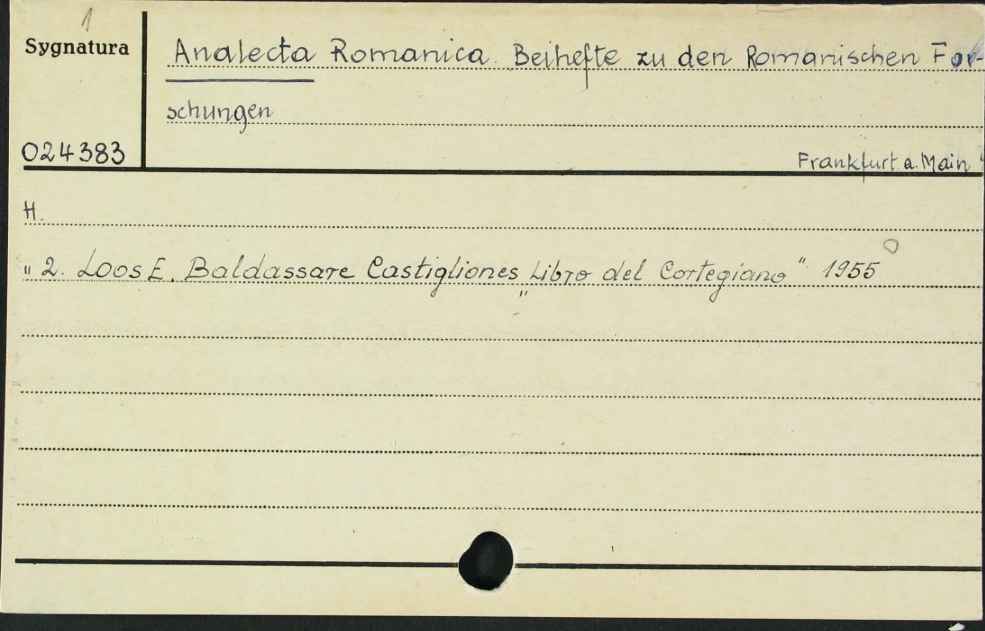 1
Sygnatura
Analecta Romanica. Beihefte zu den Romanischen For-
schungen
024383
Frankfurt a. Main
H.
" 2. Loos E. Baldassare Castigliones „Libro del Cortegiano" 1955